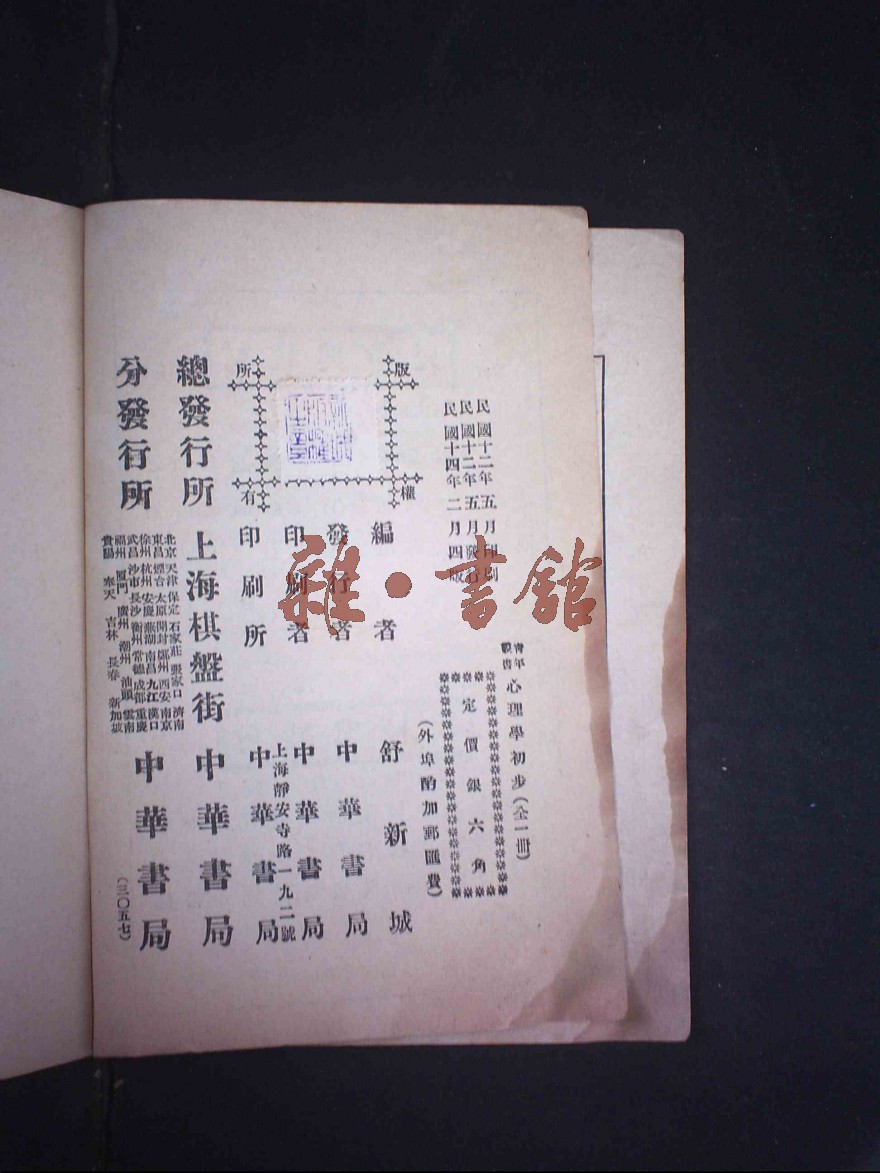 民國十二年五月印刷
民國十二年五月發行
民國十四年二月四版
青年叢書 心理學初步（全一冊）
定價銀六角
（外埠酌加郵匯費）
版權所有
編者 舒新城
發行者 中華書局
印刷者 中華書局
印刷所 上海靜安寺路一九二號 中華書局
總發行所 上海棋盤街 中華書局
分發行所 中華書局
北京 天津 保定 石家莊 張家口 濟南
東昌 煙台 太原 開封 鄭州 西安 南京
徐州 杭州 安慶 蕪湖 南昌 九江 漢口
武昌 沙市 長沙 衡州 常德 成都 重慶
福州 廈門 廣州 潮州 汕頭 雲南
貴陽 奉天 吉林 長春 新加坡
（三〇五七）
雜·書館